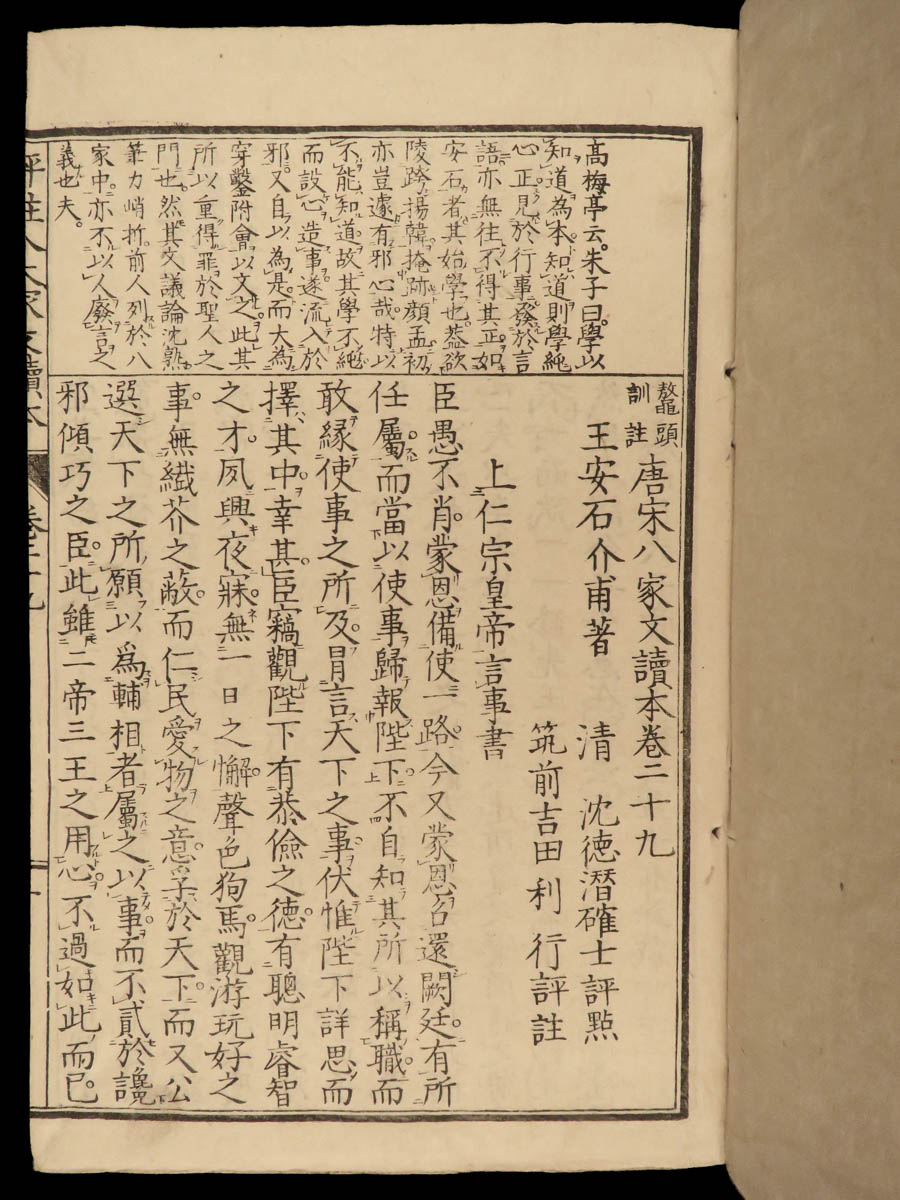 高梅亭云。朱子曰。學以
知道為本。知道則學純
心正。見於行事。發於言
語。亦無往不得其正。如
安石者。其始學也。蓋欲
陵跨揚韓。掩跡顏孟。初
亦豈遽有邪心哉。特以
不能知道。故其學不純
而設心造事。遂流入於
邪。又自以為是。而大為
穿鑿附會以文之。此其
所以重得罪於聖人之
門也。然其文議論沈熟。
筆力峭折。前人列於八
家中。亦不以人廢言之
義也夫。
鼇頭
訓註
唐宋八家文讀本卷二十九
王安石介甫著
清 沈德潛確士評點
筑前吉田利行評註
上仁宗皇帝言事書
臣愚不肖。蒙恩備使一路。今又蒙恩召還闕廷。有所
任屬。而當以使事歸報陛下。不自知其所以稱職。而
敢緣使事之所及。冒言天下之事。伏惟陛下詳思而
擇其中。幸甚。臣竊觀陛下有恭儉之德。有聰明睿智
之才。夙興夜寐。無一日之懈。聲色狗馬。觀游玩好之
事。無纖芥之蔽。而仁民愛物之意。孚於天下。而又公
選天下之所願以爲輔相者。屬之以事。而不貳於讒
邪傾巧之臣。此雖二帝三王之用心。不過如此而已。